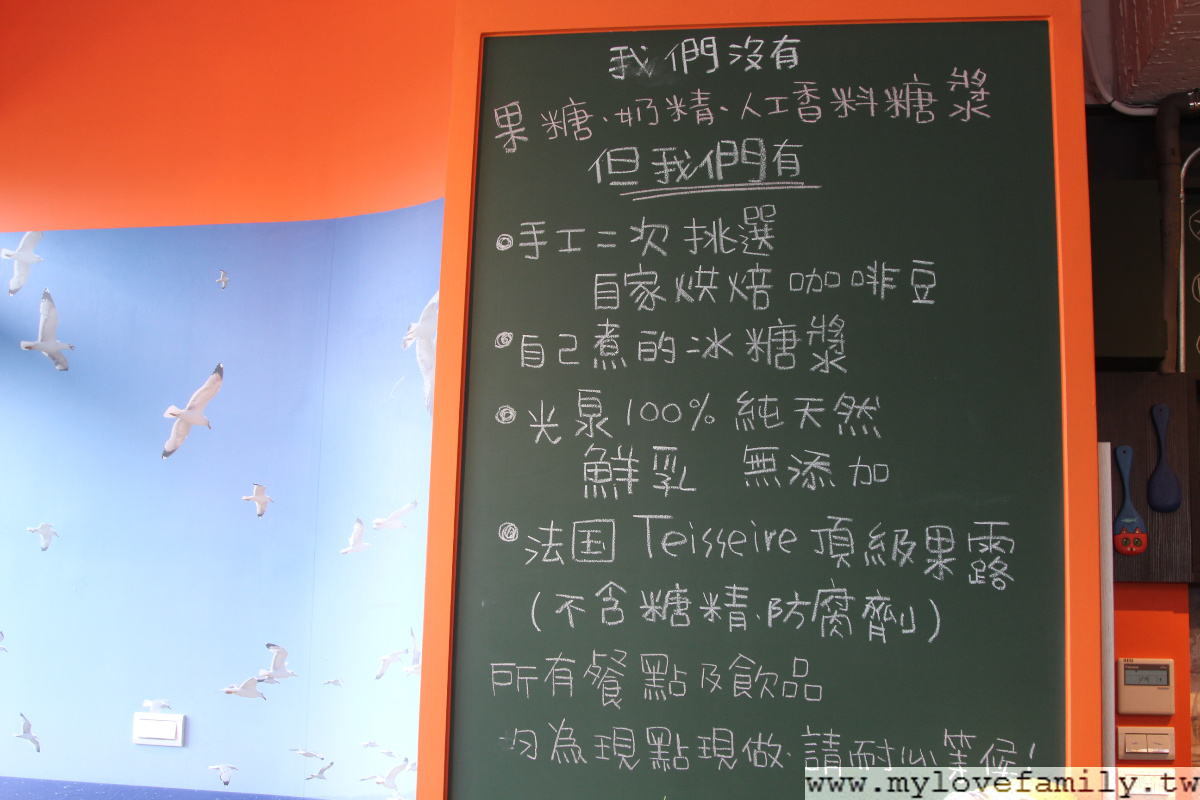 我們沒有
果糖、奶精、人工香料糖漿
但我們有
手工二次挑選
自家烘焙咖啡豆
自己煮的冰糖漿
光泉100%純天然
鮮乳 無添加
法国Teisseire頂級果露
(不含糖精、防腐劑)
所有餐點及飲品
均為現點現做、請耐心等候!
www.mylovefamily.tw